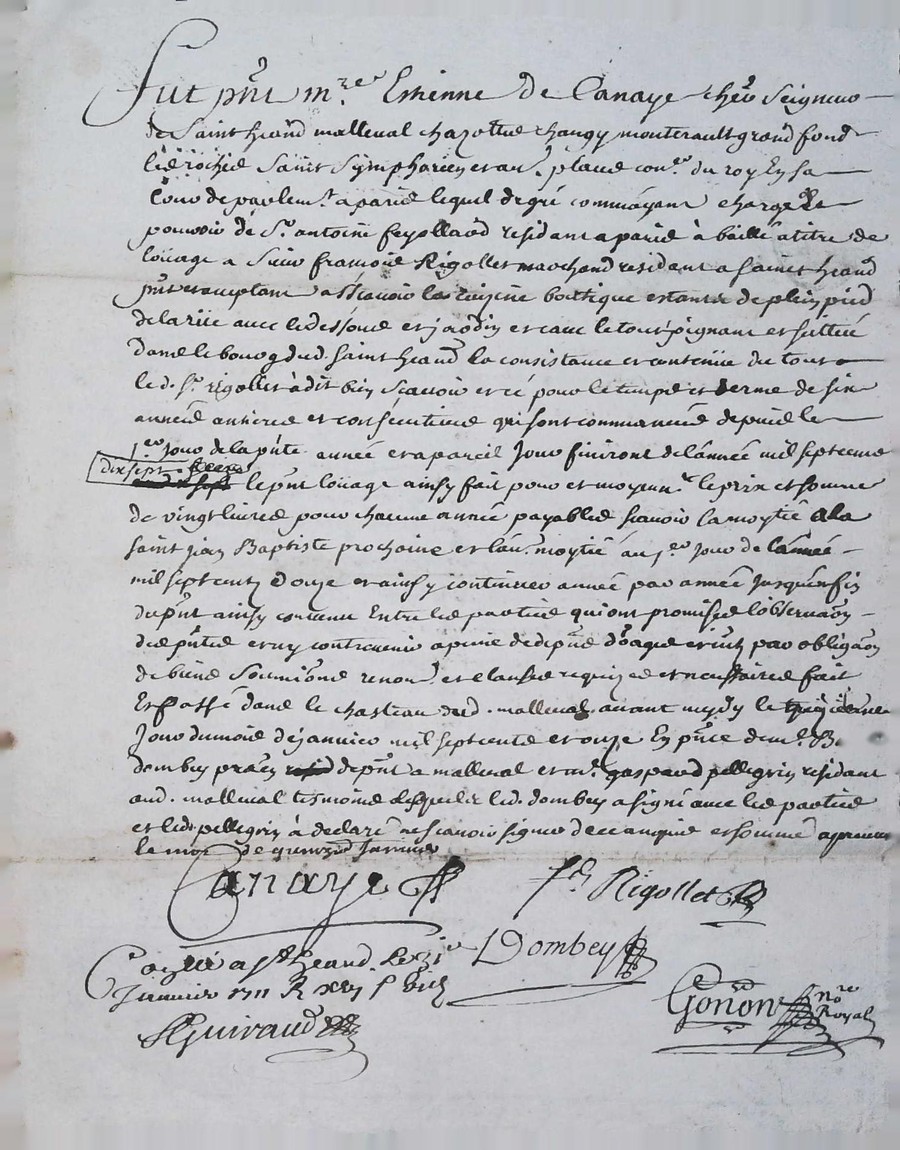 Fut pnt m.re Estienne de Canaye cher Seigneur
de Saint heand malleval chazottue changy montrault grand fond
les roches Saint Symphorien et au. places con.er du roy En sa
Cour de parlem.t a paris lequel de gré comme ayant charge &
pouvoir de S.r antoine feyollard residant a paris à baillé a titre de
loüage a Sieur francois Rigollet marchand residant a saint heand
pnt et acceptant assçavoir la cuizine boutique estants de plein pied
de la rüe avec le dessous et jardin et cave le tout joignant et scitué
dans le bourg dud. saint heand la consistance et contenüe du tout
led. sr. rigollet à dit bien scavoir et cé pour le temps et terme de six
années antieres et consecutives qui sont commancées depuis le
1.er jour de la pnte année et a pareil Jour finiront de l'année mil sept cents
dix sept
le pnt loüage ainsy fait pour et moyenn.t le prix et somme
de vingt livres pour chacune année payables scavoir la moytié a la
saint jean Baptiste prochaine et l'au. moytié au 1.er jour de l'année
mil sept cents douze et ainsy continuer année par année jusqu'en fin
du pnt ainsy contenu Entre les parties qui ont promises l'observaon
des pntes et ny contrevenir a peine de depens domages et intz par obligaon
de biens soumions renon. et clauses requizes et necessaires fait
Et passé dans le chasteau dud. malleval avant midy le treizieme
Jour du mois de janvier mil sept cents et onze En pnce de m.e B.
dombey depnt a malleval et m.e gaspard pellegrin residant
aud. malleval tesmoins led. dombey a signé avec les parties
et led. pellegrin à declaré ne scavoir signer de ce enquis et sommé
Canaye
f. Rigollet
Dombey
Conllé a St heand le 21e
Janvier 1711 R
Guiraud
Gonon no.re Royal